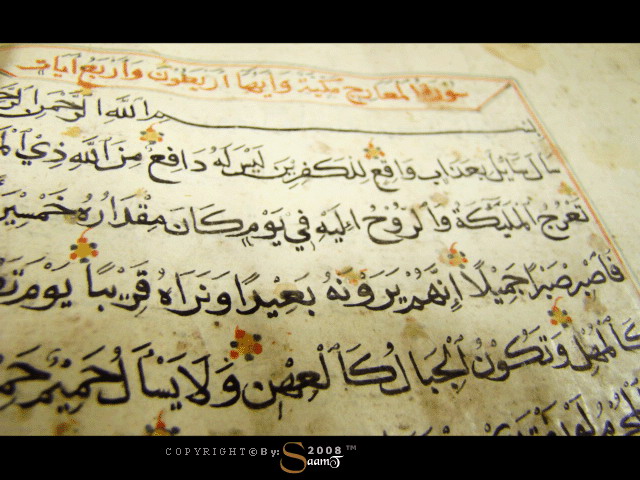 سورة المعارج مكية وآيها أربعون وأربع آيات
بسم الله الرحمن الرحيم
سَأَلَ سَايِلٌ بِعَذَابٍ وَاقِعٍ لِلْكَفِرِينَ لَيْسَ لَهُ دَافِعٌ مِنَ اللَّهِ ذِي
تَعْرُجُ الْمَلَيِكَةُ وَالرُّوحُ إِلَيْهِ فِي يَوْمٍ كَانَ مِقْدَارُهُ خَمْسِينَ
فَاصْبِرْ صَبْرًا جَمِيلًا إِنَّهُمْ يَرَوْنَهُ بَعِيدًا وَنَرَاهُ قَرِيبًا يَوْمَ
كَالْمُهْلِ وَتَكُونُ الْجِبَالُ كَالْعِهْنِ وَلَا يَسْأَلُ حَمِيمٌ
COPYRIGHT © By: Saamt 2008 ™